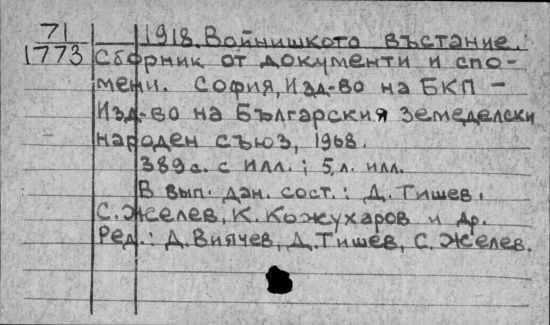 71
1773
1918. Войнишкото въстание.
Сборник от документи и спо-
мени. София, Изд-во на БКП –
Изд-во на Българския земеделски
народен съюз, 1968.
389 с. с илл.; 5 л. илл.
В вып. дан. сост.: Д. Тишев,
С. Желев, К. Кожухаров и др.
Ред.: Д. Виячев, Д. Тишев, С. Желев.